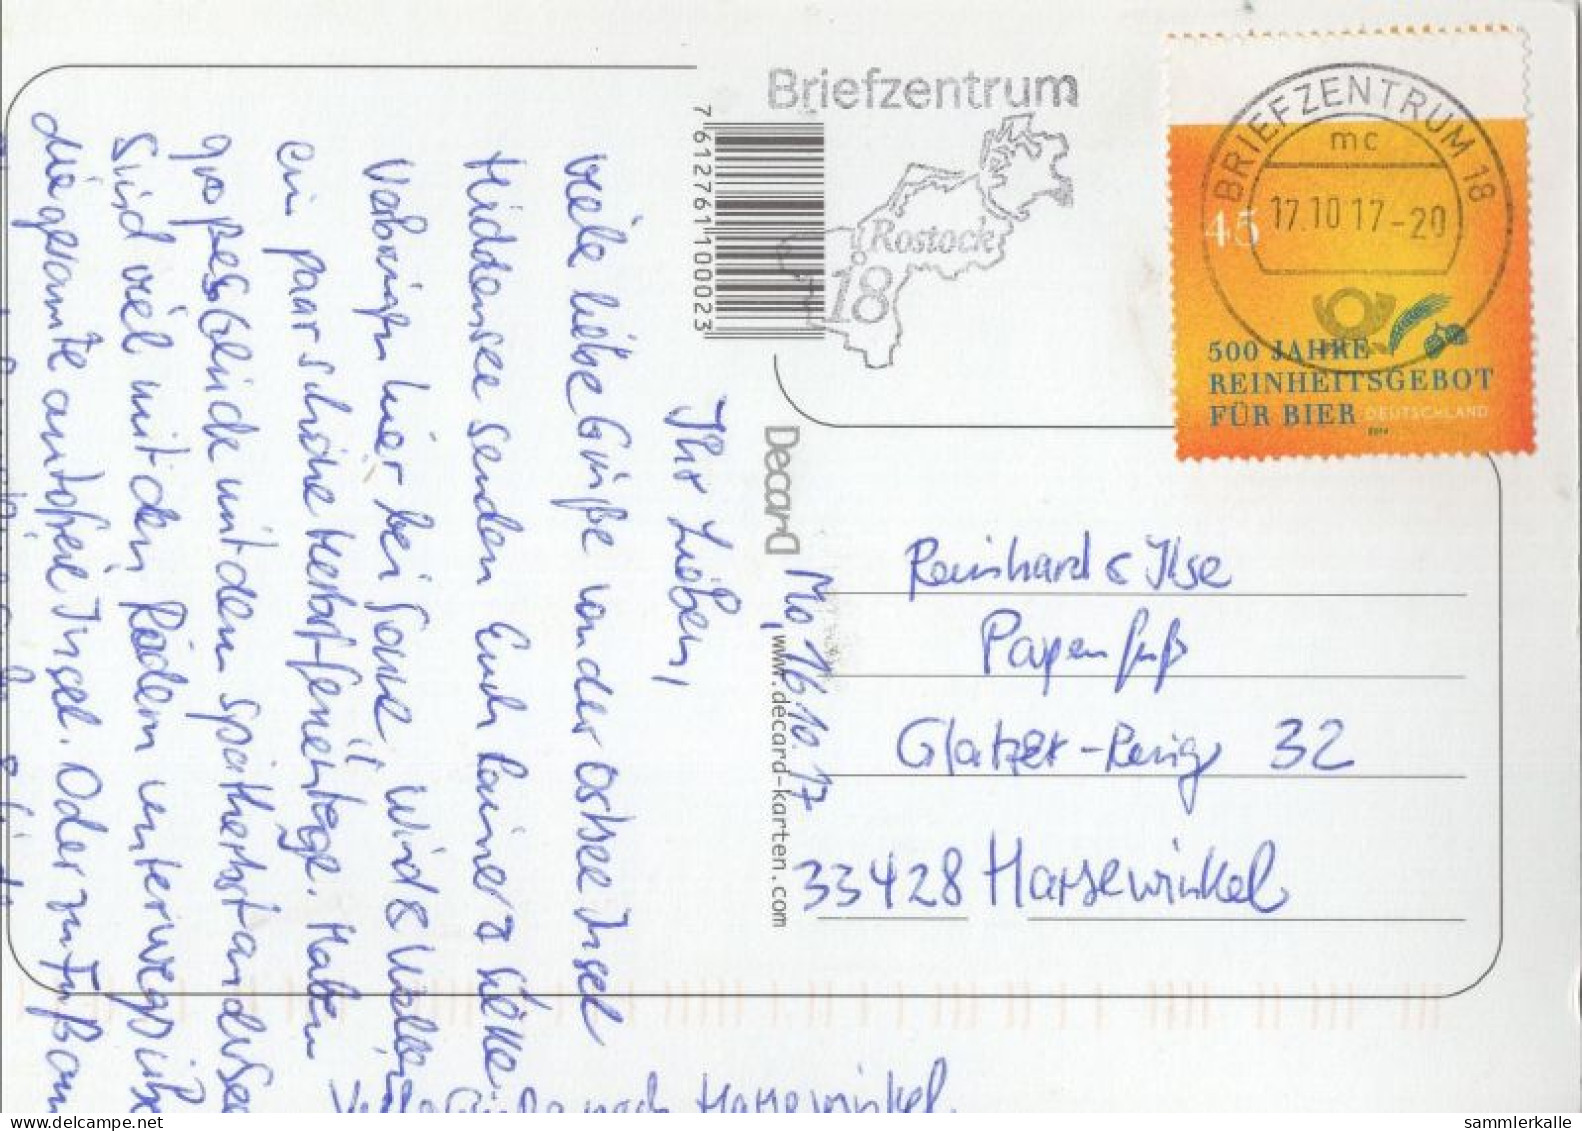 Briefzentrum
Rostock
18
BRIEFZENTRUM 18
mc
17.10.17-20
45
500 JAHRE
REINHEITSGEBOT
FÜR BIER DEUTSCHLAND
7 612761 100023
Decard
www.decard-karten.com
Mo, 16.10.17
Ihr Lieben,
viele liebe Grüße von der Ostsee Insel
Hiddensee senden Euch
hier bei Sonne, Wind & Wolken
ein paar schöne Herbstferientage. Haben
großes Glück mit dem Spätherbst an der See
Sind viel mit den Rädern unterwegs
die gesamte autofreie Insel. Oder zu Fuß am
Reinhard & Ilse
Papenfuß
Glatzer-Ring 32
33428 Harsewinkel
nach Harsewinkel
delcampe.net
sammlerkalle